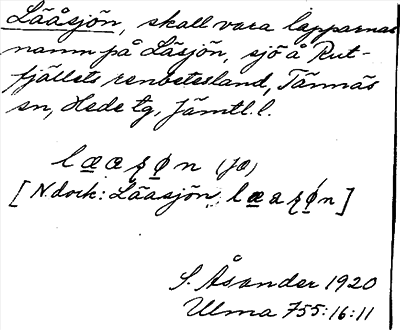 Lååsjön, skall vara lapparnas
namn på Låsjön, sjö å Rut-
fjällets renbetesland, Tännäs
sn, Hede tg, Jämtl. l.
l a̲ a ʂ ǿ̲ n (fa)
[N. dock: Låasjön: l a̲ a ʂ ǿ n]
S. Åsander 1920
Ulma 755:16:11